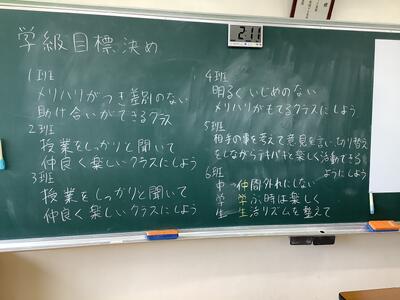 学級目標決め
2.11
1班
メリハリがつき差別のない
助け合いができるクラス
2班
授業をしっかりと聞いて
仲良く楽しいクラスにしよう
3班
授業をしっかりと聞いて
仲良く楽しいクラスにしよう
4班
明るくいじめのない
メリハリがもてるクラスにしよう
5班
相手の事を考えて意見を言い、切り替え
をしながらテキパキと楽しく活動できる
ようにしよう
6班
中 仲間外れにしない
学 学ぶ時は楽しく
生 生活リズムを整えて